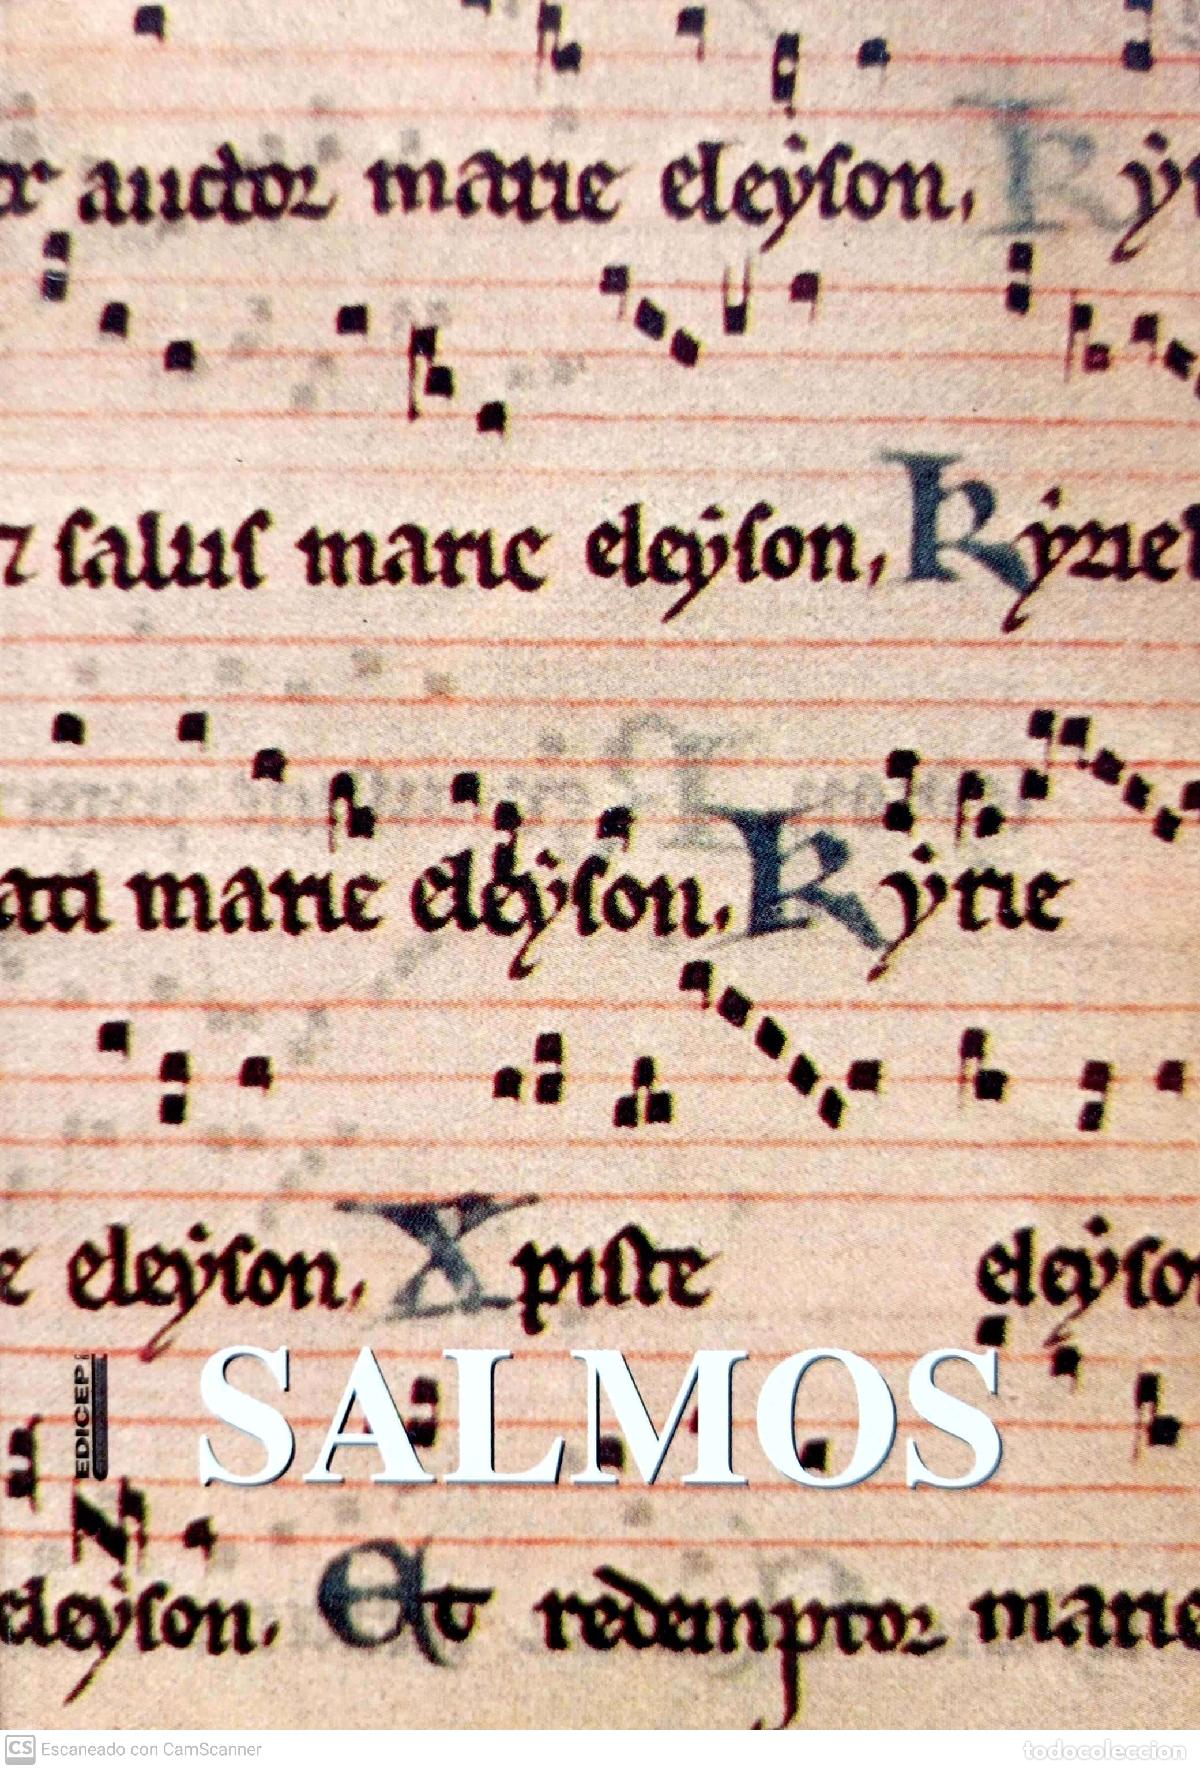 auctor marie eleyson, Ky
salus marie eleyson, Kyriel
marie eleyson, Kyrie
e eleyson, Xpiste eleyso
EDICEP
SALMOS
eleyson, Et redemptor marie
CS Escaneado con CamScanner
todocoleccion